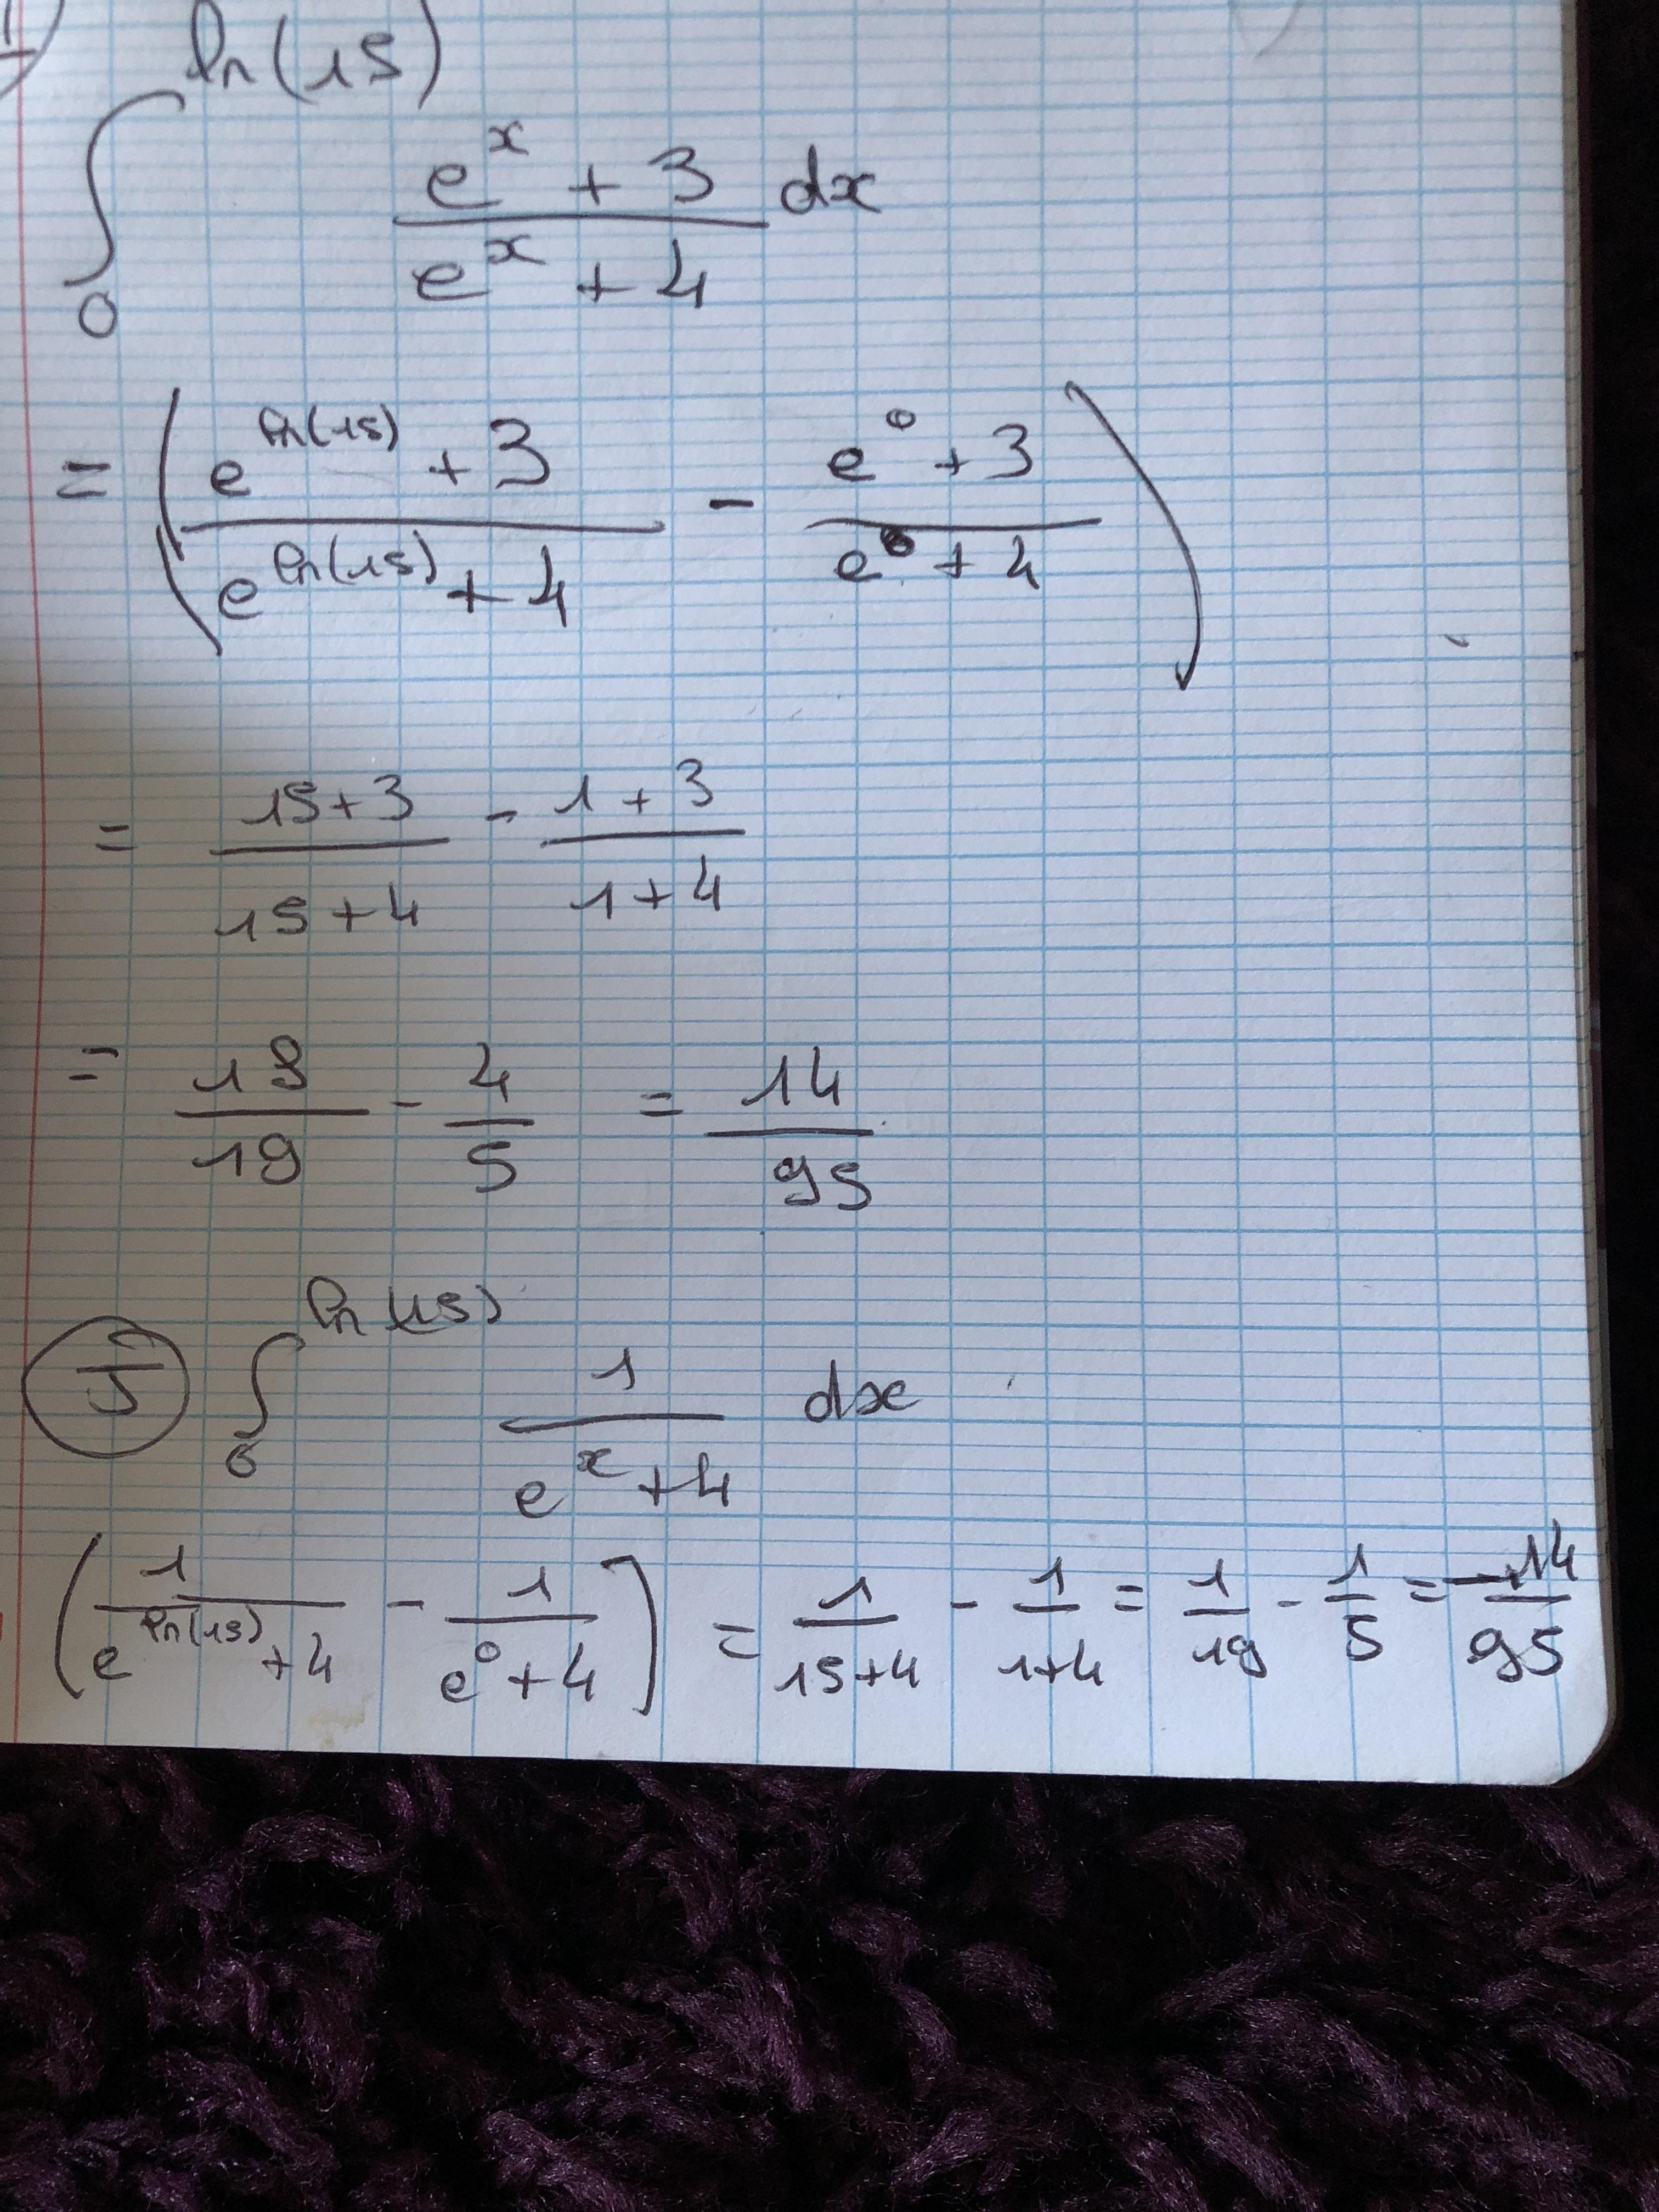 ln(15)
∫₀ (e^x + 3)/(e^x + 4) dx
= ((e^ln(15) + 3)/(e^ln(15) + 4) - (e^0 + 3)/(e^0 + 4))
= (15+3)/(15+4) - (1+3)/(1+4)
= 18/19 - 4/5 = 14/95
J ∫₀^ln(15) 1/(e^x + 4) dx
(1/(e^ln(15) + 4) - 1/(e^0 + 4)) = 1/(15+4) - 1/(1+4) = 1/19 - 1/5 = -14/95